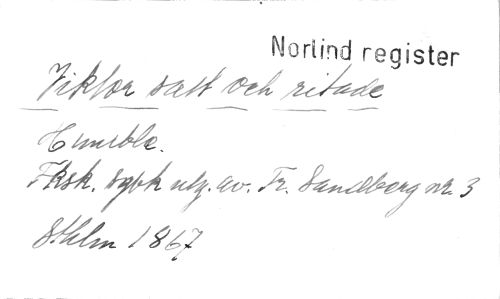 Norlind register
Viktor satt och ritade
C umbla.
Fksk. sybk utg. av. Fr. Sandberg nr. 3
Sthlm 1867